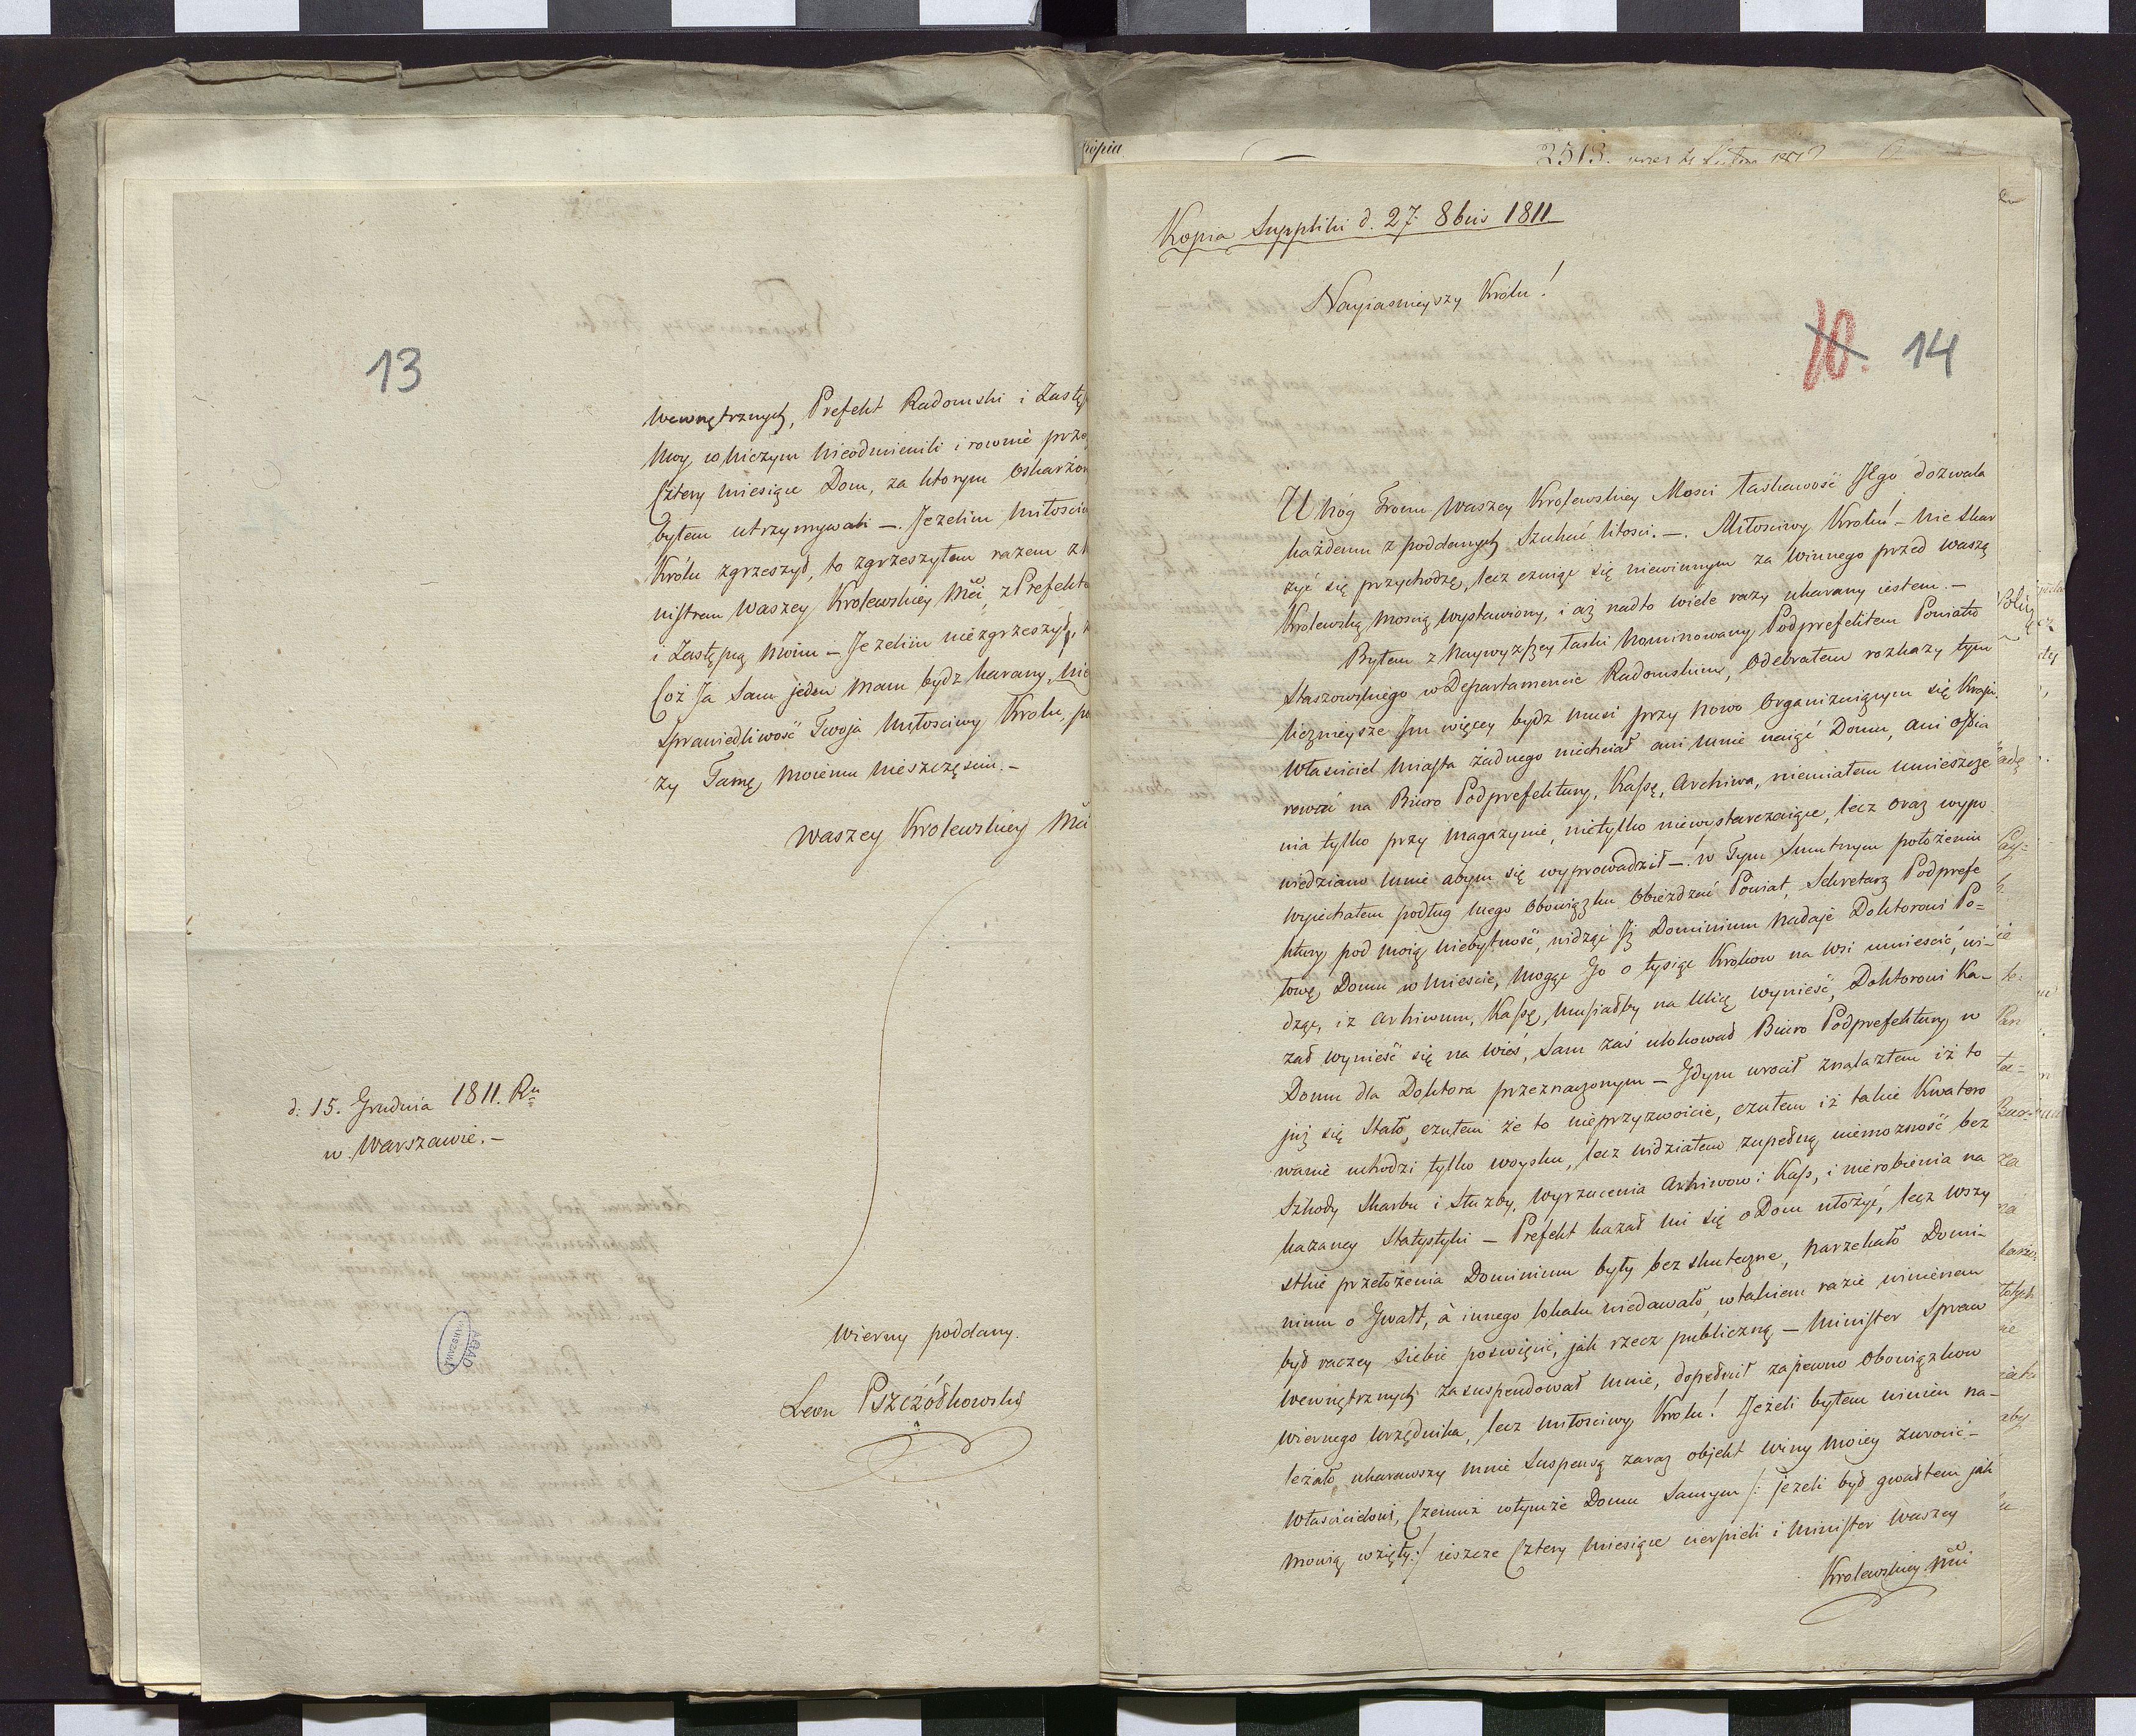 13
wewnętrznych, Prefekt Radomski i Zastę
moy, w niczym nieodmienili i rownie prze
Cztery miesiące Dom, za ktorym oskarżon
byłem utrzymywali —. Jezelim miłości
Królu zgrzeszył, to zgrzeszyłem razem z
nistrem Waszey Krolewskiey Mci, z Prefekt
i Zastępcą moim — Jezelim niezgrzeszył,
Coż Ja sam jeden mam bydz karany,
sprawiedliwość Twoja miłosciwy Krolu, po
zy Tamę moiemu nieszczęsciu. —
Waszey Krolewskiey Mci
d: 15. Grudnia 1811. Ru
w Warszawie. —
wierny poddany.
Leon Pszczółkowski
AGAD
WARSZAWA
kopia
2513.
Kopia Suppliki d. 27. 8bris 1811
Nayiasnieyszy Królu!
10. 14
U nóg Tronu Waszey Krolewskiey Mosci łaskawość Jego dozwala
każdemu z poddanych szukać litosci. —. Miłosciwy Krolu! — nie skar
żyć się przychodzę, lecz czuiąc się niewinnym za winnego przed Waszą
Krolewską Moscią wystawiony, i aż nadto wiele razy ukarany iestem. —
Byłem z naywyższey łaski nominowany Podprefektem Powiatu
Staszowskiego w Departamencie Radomskim, odebrałem rozkazy tym
licznieysze Im więcey bydz musi przy nowo organizuiącym się Kraju.
Właściciel miasta żadnego niechciał ani mnie naiąć Domu, ani ofia
rować na Biuro Podprefektury, Kassę, Archiwa, niemiałem umieszcze
nia tylko przy magazynie, nietylko niewystarczaiące, lecz oraz wypo
wiedziano mnie abym się wyprowadził —. w Tym smutnym położeniu
wyiechałem podług mego obowiązku obieżdżać Powiat, Sekretarz Podprefe
ktury pod moią niebytność, widząc Jż Dominium nadaje Doktorowi Po=
łowę Domu w mieście, mogąc Go o tysiąc kroków na wsi umieścić, wi-
dząc, iż Arhiwum, Kassę, musiałby na Ulicę wynieść, Doktorowi Ka-
zał wynieść się na wieś, sam zaś ulokował Biuro Podprefektury w
Domu dla Doktora przeznaczonym — Gdym wrócił znalazłem iż to
już się stało, czułem że to nieprzyzwoicie, czułem iż takie kwatero
wanie uchodzi tylko woysku, lecz widziałem zupełną niemożność bez
szkody Skarbu i Służby, wyrzucenia Arhiwow i Kass, i nierobienia na
kazaney Statystyki — Prefekt kazał mi się o Dom ułożyć, lecz wszy
stkie przełożenia Dominium były bezskuteczne, narzekało Domi-
nium o Gwałt, á innego lokalu niedawało, w takiem razie winienem
był raczey siebie poświęcić, jak rzecz publiczną — Minister Spraw
wewnętrznych zasuspendował mnie, dopełnił zapewno obowiązkow
wiernego urzędnika, lecz miłosciwy Krolu! Jeżeli byłem winien na-
leżało ukarawszy mnie suspensą zaraz objekt winy moiey zwrócić. —
Właścicielowi, Czemuż w tymże Domu samym /: jezeli był gwałtem jak
mowią wzięty :/ ieszcze Cztery miesiące cierpieli i Minister Waszey
Krolewskiey Mci